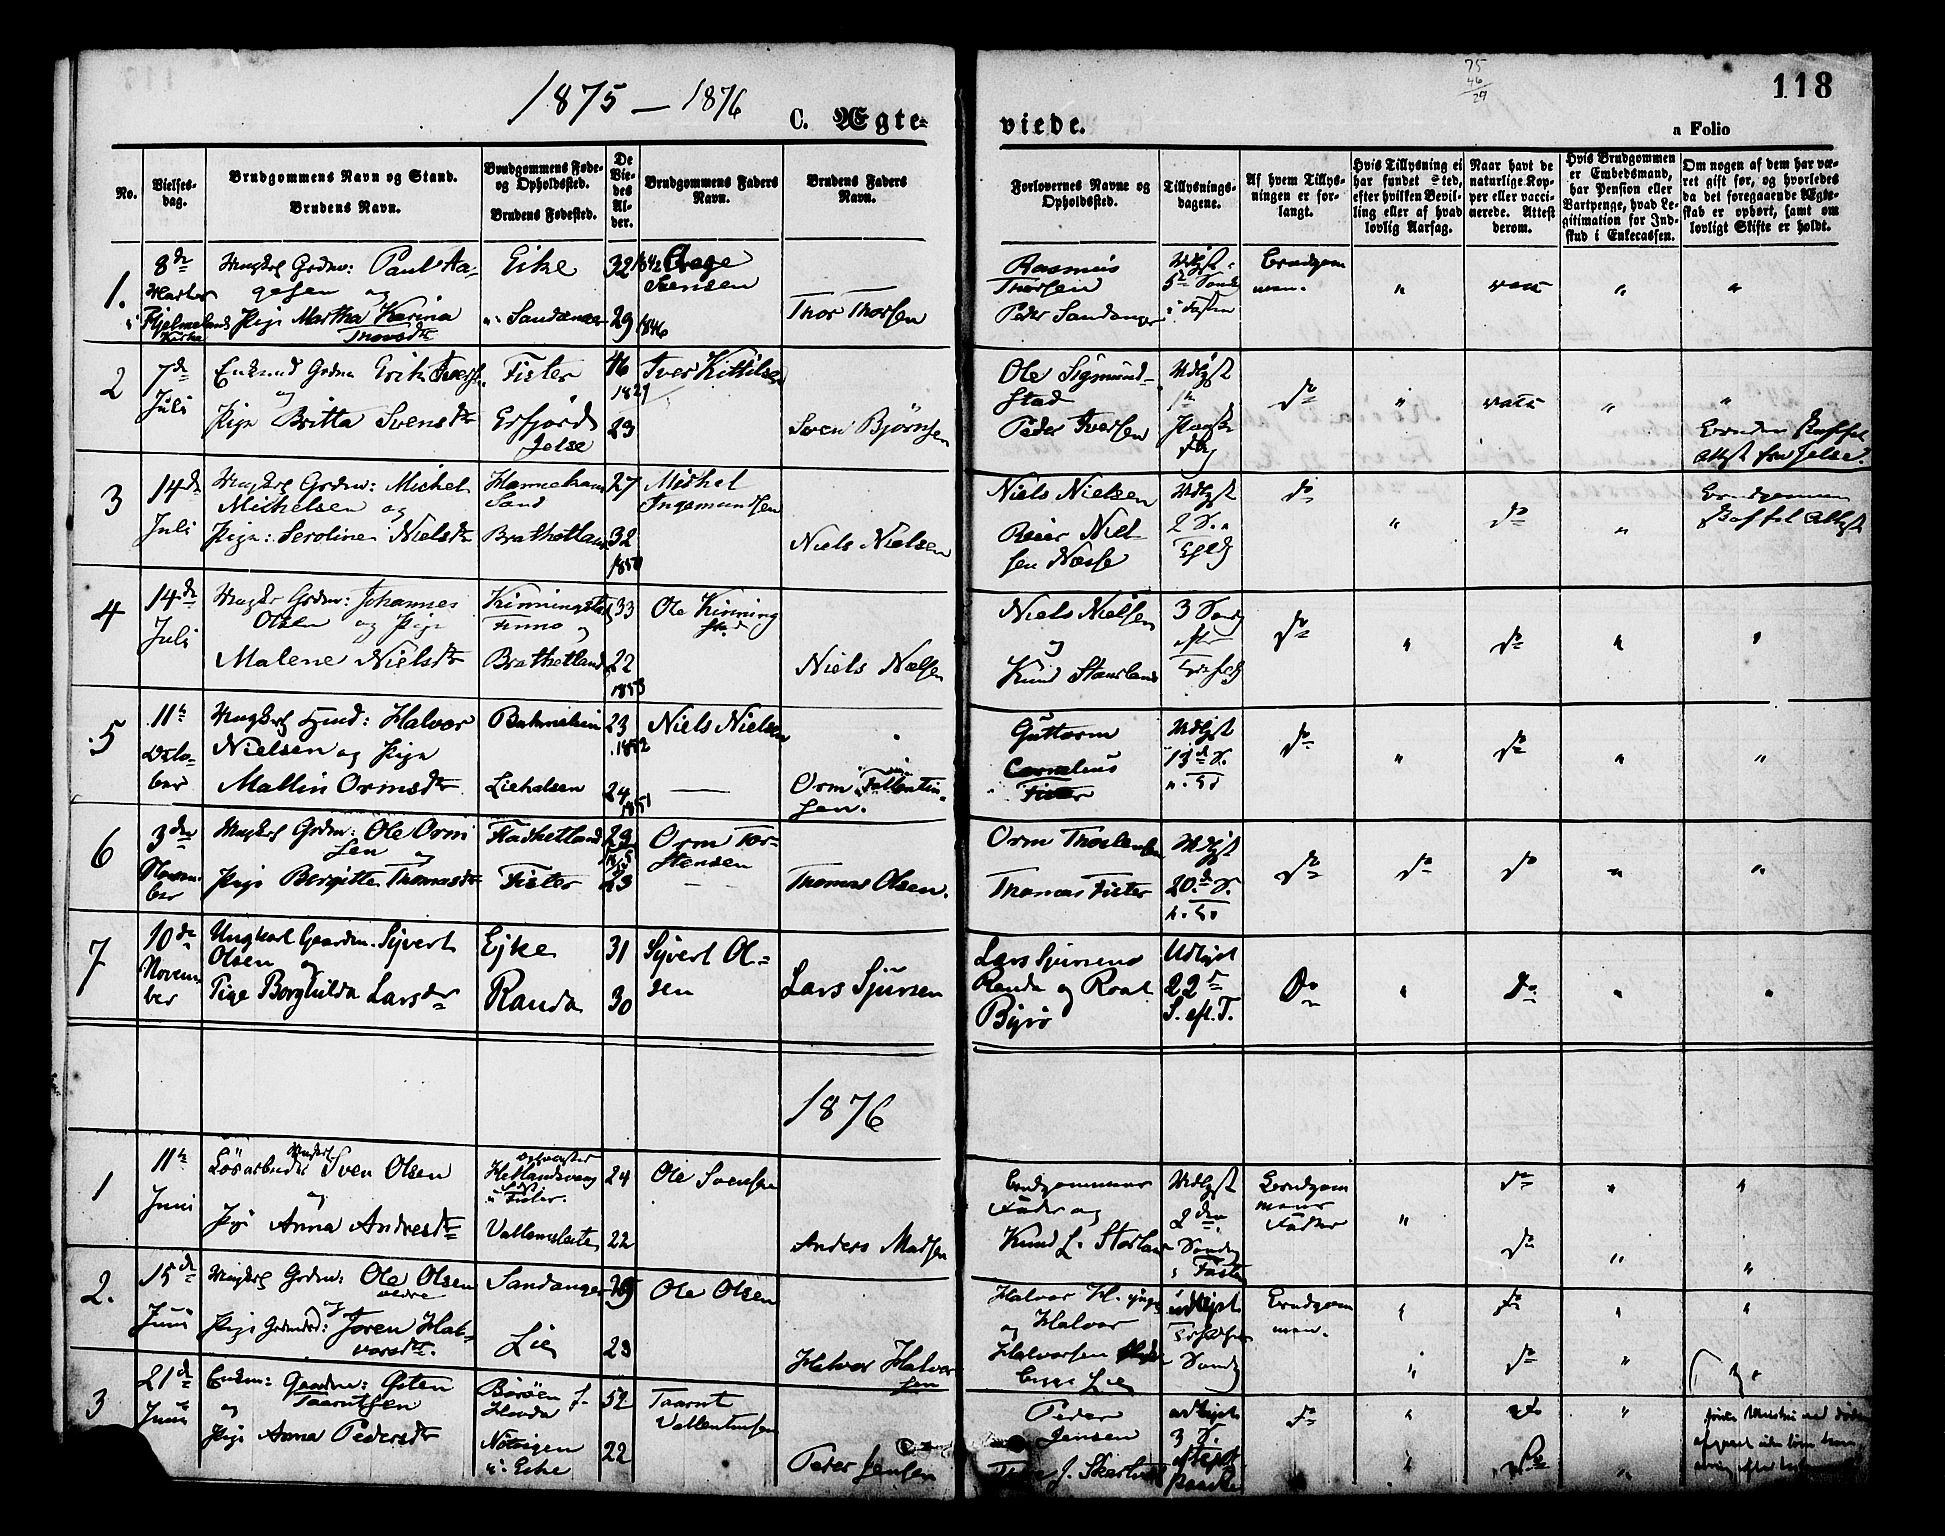 1875 — 1876
C. Ægte-
viede.
75
46
29
118
a Folio
No.
Vielses-
dag.
Brudgommens Navn og Stand.
Brudens Navn.
Brudgommens Føde-
og Opholdssted.
Brudens Fødested.
De
Vie-
des
Al-
der.
Brudgommens Faders
Navn.
Brudens Faders
Navn.
Forlovernes Navne og
Opholdssted.
Tillysnings-
dagene.
Af hvem Tillys-
ningen er for-
langt.
Hvis Tillysning ei
har fundet Sted,
efter hvilken Bevil-
ling eller af hvad
lovlig Aarsag.
Naar havt de
naturlige Kop-
per eller vacci-
nerede. Attest
derom.
Hvis Brudgommen
er Embedsmand,
har Pension eller
Vartpenge, hvad Le-
gitimation for Ind-
skud i Enkecassen.
Om nogen af dem har væ-
ret gift før, og hvorledes
da det foregaaende Ægte-
skab er ophørt, samt om
lovligt Skifte er holdt.
1.
8de
Marts
i Hjelmeland
Kirke
Ungkrl Grdm: Paul Aa-
gesen og
Pige Martha Karina
Thorsdtr
Eike
" Sandanger
32 1842
29 1846
Aage
Svensen
Thor Thorsen
Rasmus
Thorsen
Peder Sandanger
Udlyst
5te Sønd
i Fasten
Brudgom
men.
" vacc " "
2
7de
Juli
Enkmd Grdm Erik Iversen
og
Pige Britta Svensdtr
Fister
Erfjord
Jelse
46
1829
23
Iver Kittilsen
Sven Björnsen
Ole Sigmund-
stad
Peder Iversen
Udlyst
1te
do " vacc " "
Bruden
Attest fra Jelse.
3
14de
Juli
Ungkrl Grdm: Michel
Michelsen og
Pige: Seroline Nielsdtr
Sand
Brathetland
27
32
Michel
Ingemundsen
Niels Nielsen
Niels Nielsen
Reier Niel-
sen Næsse
Udlyst
2 S.
do " do "
Brudgommen
4
14de
Juli
Ungkr Grdm: Johannes
Olsen og Pige
Malene Nielsdtr
Finnø og
Brathetland
33
22
1853
Ole Kinning
stad
Niels Nielsen
Niels Nielsen
og
Knud Staurland
3 Sønd
eftr
do " do " "
5
11te
Octo-
ber
Halvor
Nielsen og Pige
Mallin Ormsdtr
Liehalsen
23
1852
24
1851
Niels Nielsen
—
Orm Fallentin-
sen.
Guttorm
Cornelius
Fister
Udlyst
13de S.
do " do " "
6
3den
Novem-
ber
Ungkrl Grdm: Ole Orm
sen og
Pige Bergitte Thomasdtr
Fladhetland
Fister
29
23
Orm Tor-
stensen
—
Thomas Olsen.
Orm Thorstensen
Thomas Fister
Udlyst
20de S.
do do do " "
7
10de
Novem-
ber
Ungkarl Gaardm. Sjvert
Olsen og
Pige Borghilda Larsdtr
Ejke
Randa
31
30
Sjvert Ol-
sen
Lars Sjursen
Lars Sjursens
Randa og Roal
Byrø
Udlyst
22de
S. eft. T.
Do " Do " "
1876
1
11te
Juni
Løsarbeider Sven Olsen
og
Pige Anna Andresdtr
Opvoxter
Hetlandsvaag
Fister
24
22
Ole Svensen
Anders Madsen
Brudgommens
Fader og
Knud L. Storland
Udlyst
2den
Sønd
i Fasten
Brudgom
mens
Fader
" do " "
do " "
2.
15de
Juni
Ungkrl Grdm: Ole Olsen
og
Joren Hal-
vorsdtr.
Sandanger
Lie
29
23
Ole Olsen
Halvor Halvor
sen
Halvor H. yngr
og Halvor
Halvorsen
Lie
udlyst
Sønd
Brudgom
men.
" do " "
" do "
3
21de
Juni
Enkm: Gaardm: Østen
og Taarutsen
Pige Anna Pedersdtr
Nøtvigen
Eike
52
22
Taarut
Vallentinsen
Peder Jensen
Peder
Jensen
udlyst
3 S.
do " do "
" do "